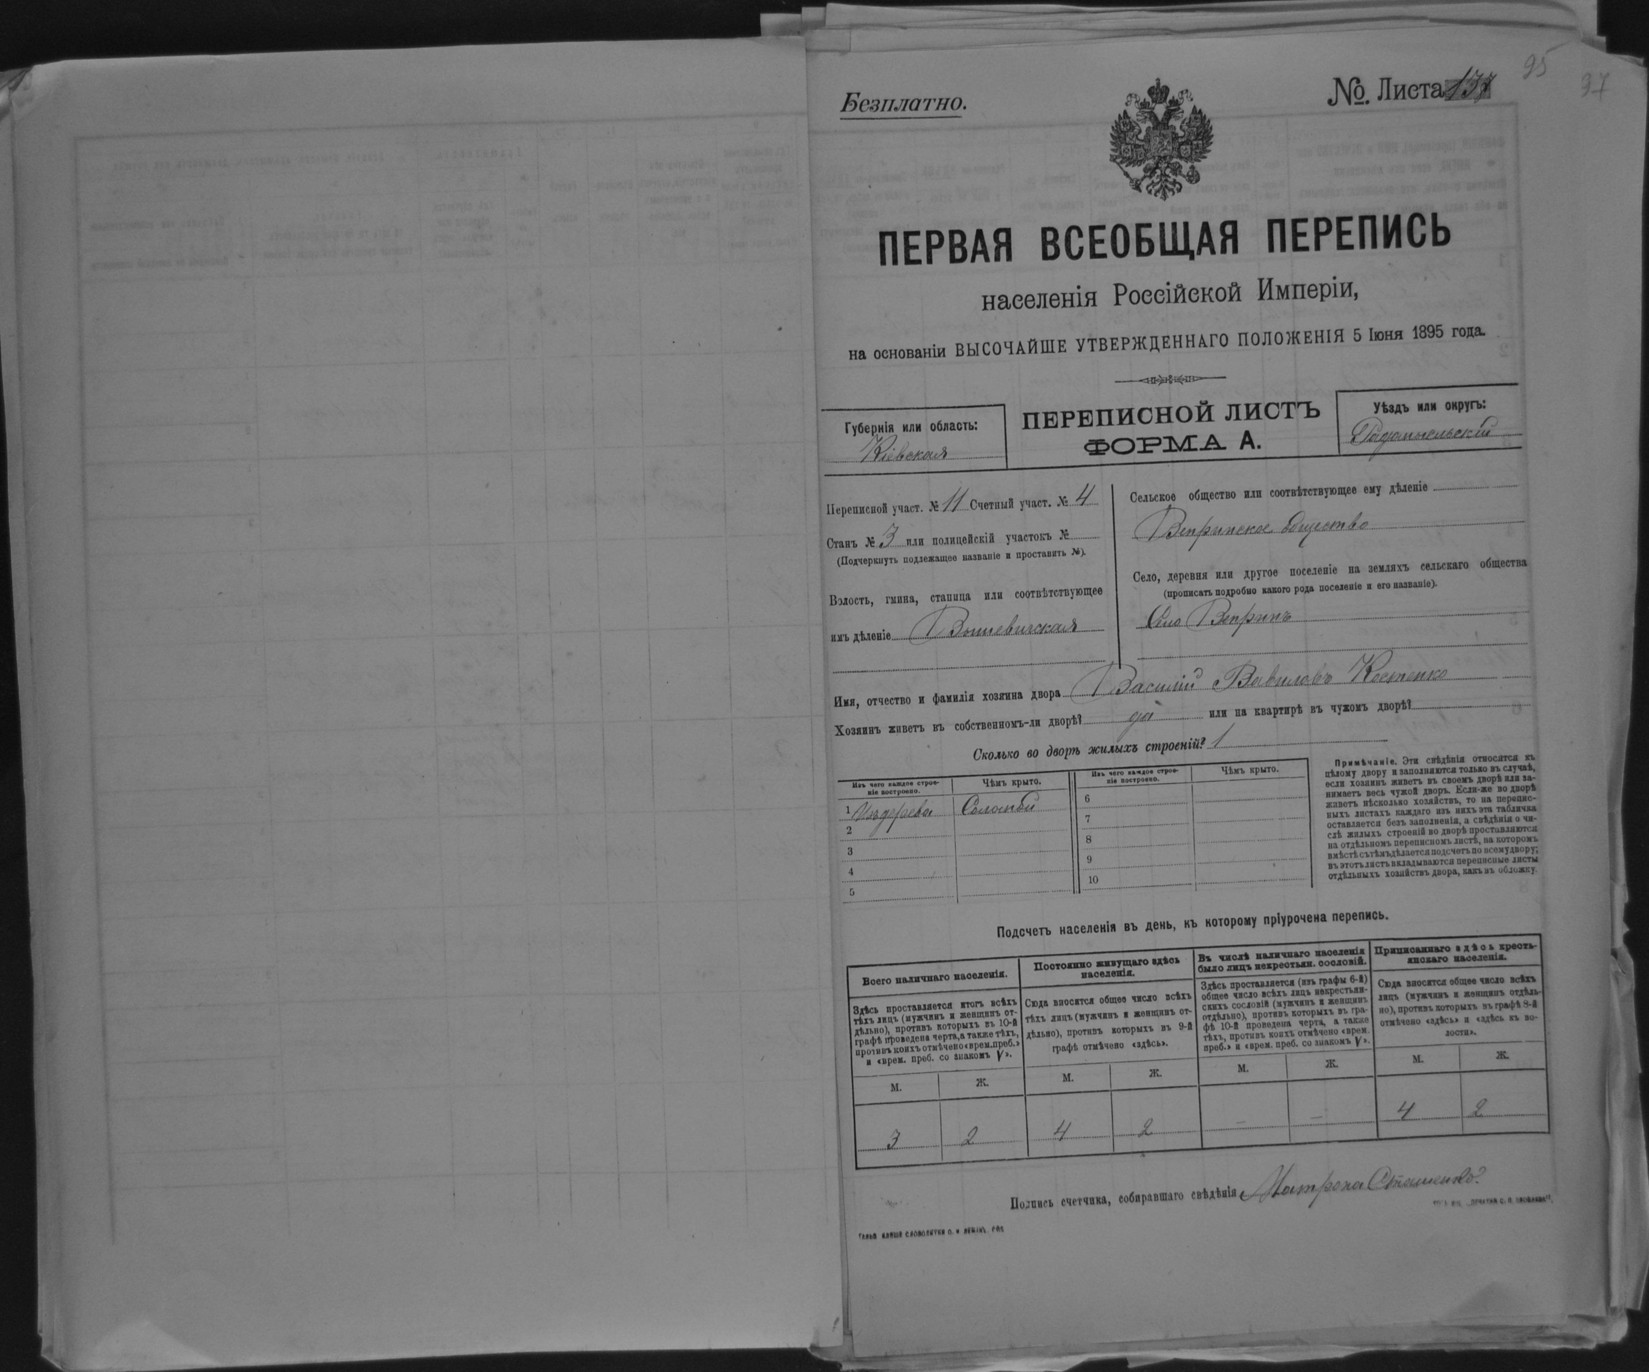 95
37
Безплатно.
№ Листа 137
ПЕРВАЯ ВСЕОБЩАЯ ПЕРЕПИСЬ
населенія Россійской Имперіи,
на основаніи ВЫСОЧАЙШЕ УТВЕРЖДЕННАГО ПОЛОЖЕНІЯ 5 Іюня 1895 года.
Губернія или область:
Кіевская
ПЕРЕПИСНОЙ ЛИСТЪ
ФОРМА А.
Уѣздъ или округъ:
Радомысльскій
Переписной участ. № 11 Счетный участ. № 4
Станъ № 3 или полицейскій участокъ №
(Подчеркнуть подлежащее названіе и проставить №).
Волость, гмина, станица или соотвѣтствующее
имъ дѣленіе Вышевичская
Сельское общество или соотвѣтствующее ему дѣленіе
Вепринское общество
Село, деревня или другое поселеніе на земляхъ сельскаго общества
(прописать подробно какого рода поселеніе и его названіе).
Село Вепринъ
Имя, отчество и фамилія хозяина двора Василій Вавиловъ Костенко
Хозяинъ живетъ въ собственномъ-ли дворѣ? да или на квартирѣ въ чужомъ дворѣ?
Сколько во дворѣ жилыхъ строеній? 1
Изъ чего каждое строе-
ніе построено.
Чѣмъ крыто.
Изъ чего каждое строе-
ніе построено.
Чѣмъ крыто.
1 Изъ дерева Соломой
2
3
4
5
6
7
8
9
10
Примѣчаніе. Эти свѣдѣнія относятся къ
цѣлому двору и заполняются только въ случаѣ,
если хозяинъ живетъ въ своемъ дворѣ или за-
нимаетъ весь чужой дворъ. Если-же во дворѣ
живетъ нѣсколько хозяйствъ, то на перепис-
ныхъ листахъ каждаго изъ нихъ эта табличка
оставляется безъ заполненія, а свѣдѣнія о чи-
слѣ жилыхъ строеній во дворѣ проставляются
на отдѣльномъ переписномъ листѣ, на которомъ
вмѣстѣ съ тѣмъ дѣлается подсчетъ по всему двору;
въ этотъ листъ вкладываются переписные листы
отдѣльныхъ хозяйствъ двора, какъ въ обложку.
Подсчетъ населенія въ день, къ которому пріурочена перепись.
Всего наличнаго населенія.
Здѣсь проставляется итогъ всѣхъ
тѣхъ лицъ (мужчинъ и женщинъ от-
дѣльно), противъ которыхъ въ 10-й
графѣ проведена черта, а также тѣхъ,
противъ коихъ отмѣчено «врем. преб.»
и «врем. преб. со знакомъ V».
М. Ж.
3 2
Постоянно живущаго здѣсь
населенія.
Сюда вносится общее число всѣхъ
тѣхъ лицъ (мужчинъ и женщинъ от-
дѣльно), противъ которыхъ въ 9-й
графѣ отмѣчено «здѣсь».
М. Ж.
4 2
Въ числѣ наличнаго населенія
было лицъ некрестьян. сословій.
Здѣсь проставляется (изъ графы 6-й)
общее число всѣхъ лицъ некрестьян-
скихъ сословій (мужчинъ и женщинъ
отдѣльно), противъ которыхъ въ гра-
фѣ 10-й проведена черта, а также
тѣхъ, противъ коихъ отмѣчено «врем.
преб.» и «врем. преб. со знакомъ V».
М. Ж.
— —
Приписаннаго здѣсь кресть-
янскаго населенія.
Сюда вносится общее число всѣхъ
лицъ (мужчинъ и женщинъ отдѣль-
но), противъ которыхъ въ графѣ 8-й
отмѣчено «здѣсь» и «здѣсь въ во-
лости».
М. Ж.
4 2
Подпись счетчика, собиравшаго свѣдѣнія